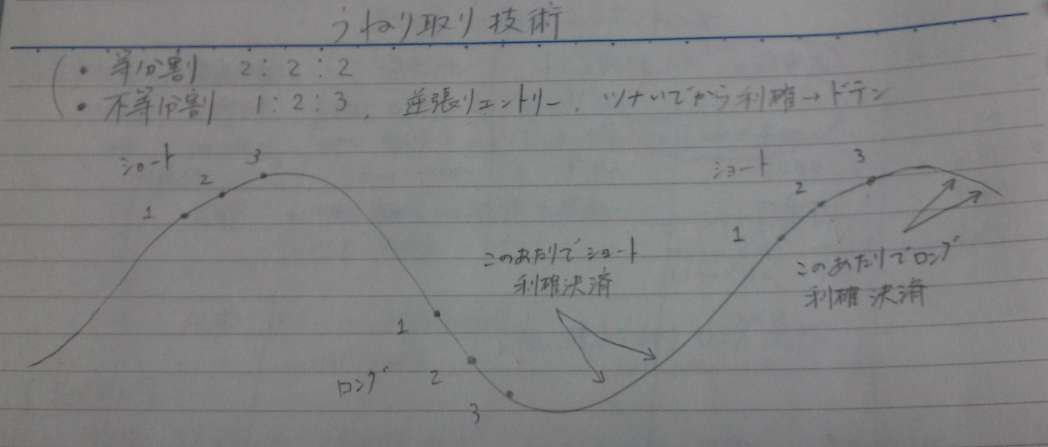 うねり取り技術
・等分割 2:2:2
・不等分割 1:2:3、逆張りエントリー、ツナいでから利確→ドテン
ショート
1
2
3
ロング
1
2
3
このあたりでショート
利確決済
ショート
1
2
3
このあたりでロング
利確決済